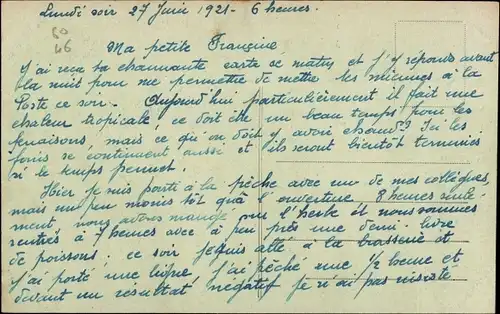 Lundi soir 27 Juin 1921 - 6 heures.
60
66
Ma petite Francine
J'ai reçu ta charmante carte ce matin et j'y réponds avant
la nuit pour me permettre de mettre les miennes à la
Poste ce soir. Aujourd'hui particulièrement il fait une
chaleur tropicale, ce doit être un beau temps pour les
fenaisons, mais ce qu'on doit y avoir chaud? Ici les
foins se continuent aussi et ils seront bientôt terminés
si le temps permet.
Hier je suis parti à la pêche avec un de mes collègues,
mais un peu moins tôt qu'à l'ouverture 8 heures seule
ment nous avons mangé sur l'herbe et nous sommes
rentrés à 7 heures avec à peu près une demi livre
de poissons, ce soir je suis allé à la brasserie et
j'ai porté une ligne j'ai pêché une 1/2 heure et
devant un résultat négatif je n'ai pas insisté